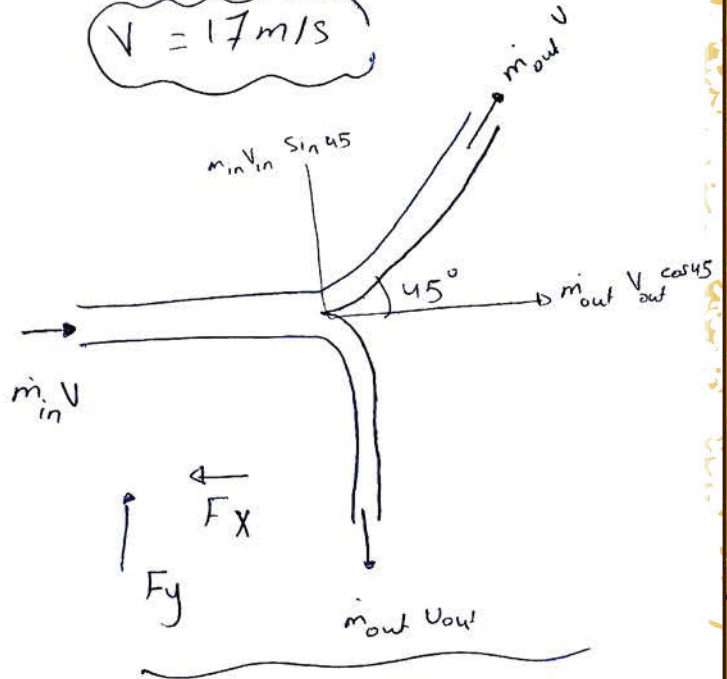 V = 17 m/s
ṁout V
min Vin Sin 45
45°
ṁout Vout cos45
ṁin V
Fx
Fy
ṁout Vout